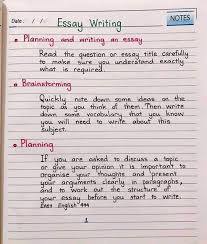 Date: / /
Essay Writing
NOTES
Planning and writing an essay
Read the question or essay title carefully
to make sure you understand exactly
what is required.
Brainstorming
Quickly note down some ideas on the
topic as you think of them. Then write
down some vocabulary that you know
you will need to write about this
subject.
Planning
If you are asked to discuss a topic
or give your opinion it is important to
organise your thoughts and present
your arguments clearly in paragraphs,
and to work out the structure of
your essay before you start to write.
English
1